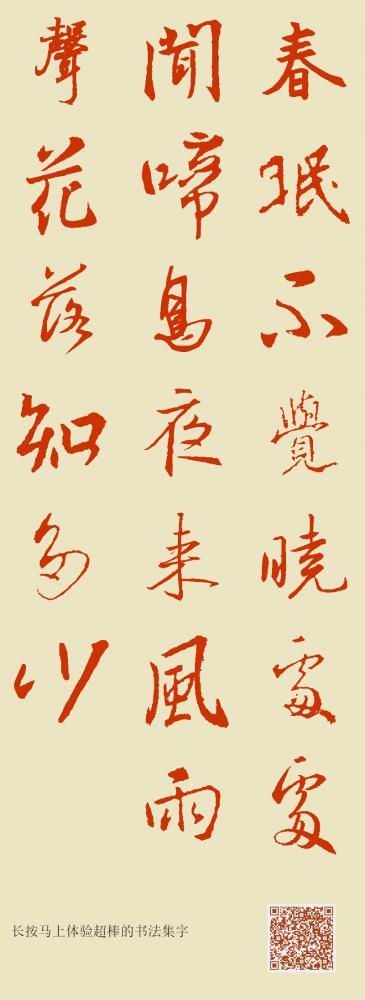 春眠不覺曉處處
聞啼鳥夜来風雨
聲花落知多少
长按马上体验超棒的书法集字